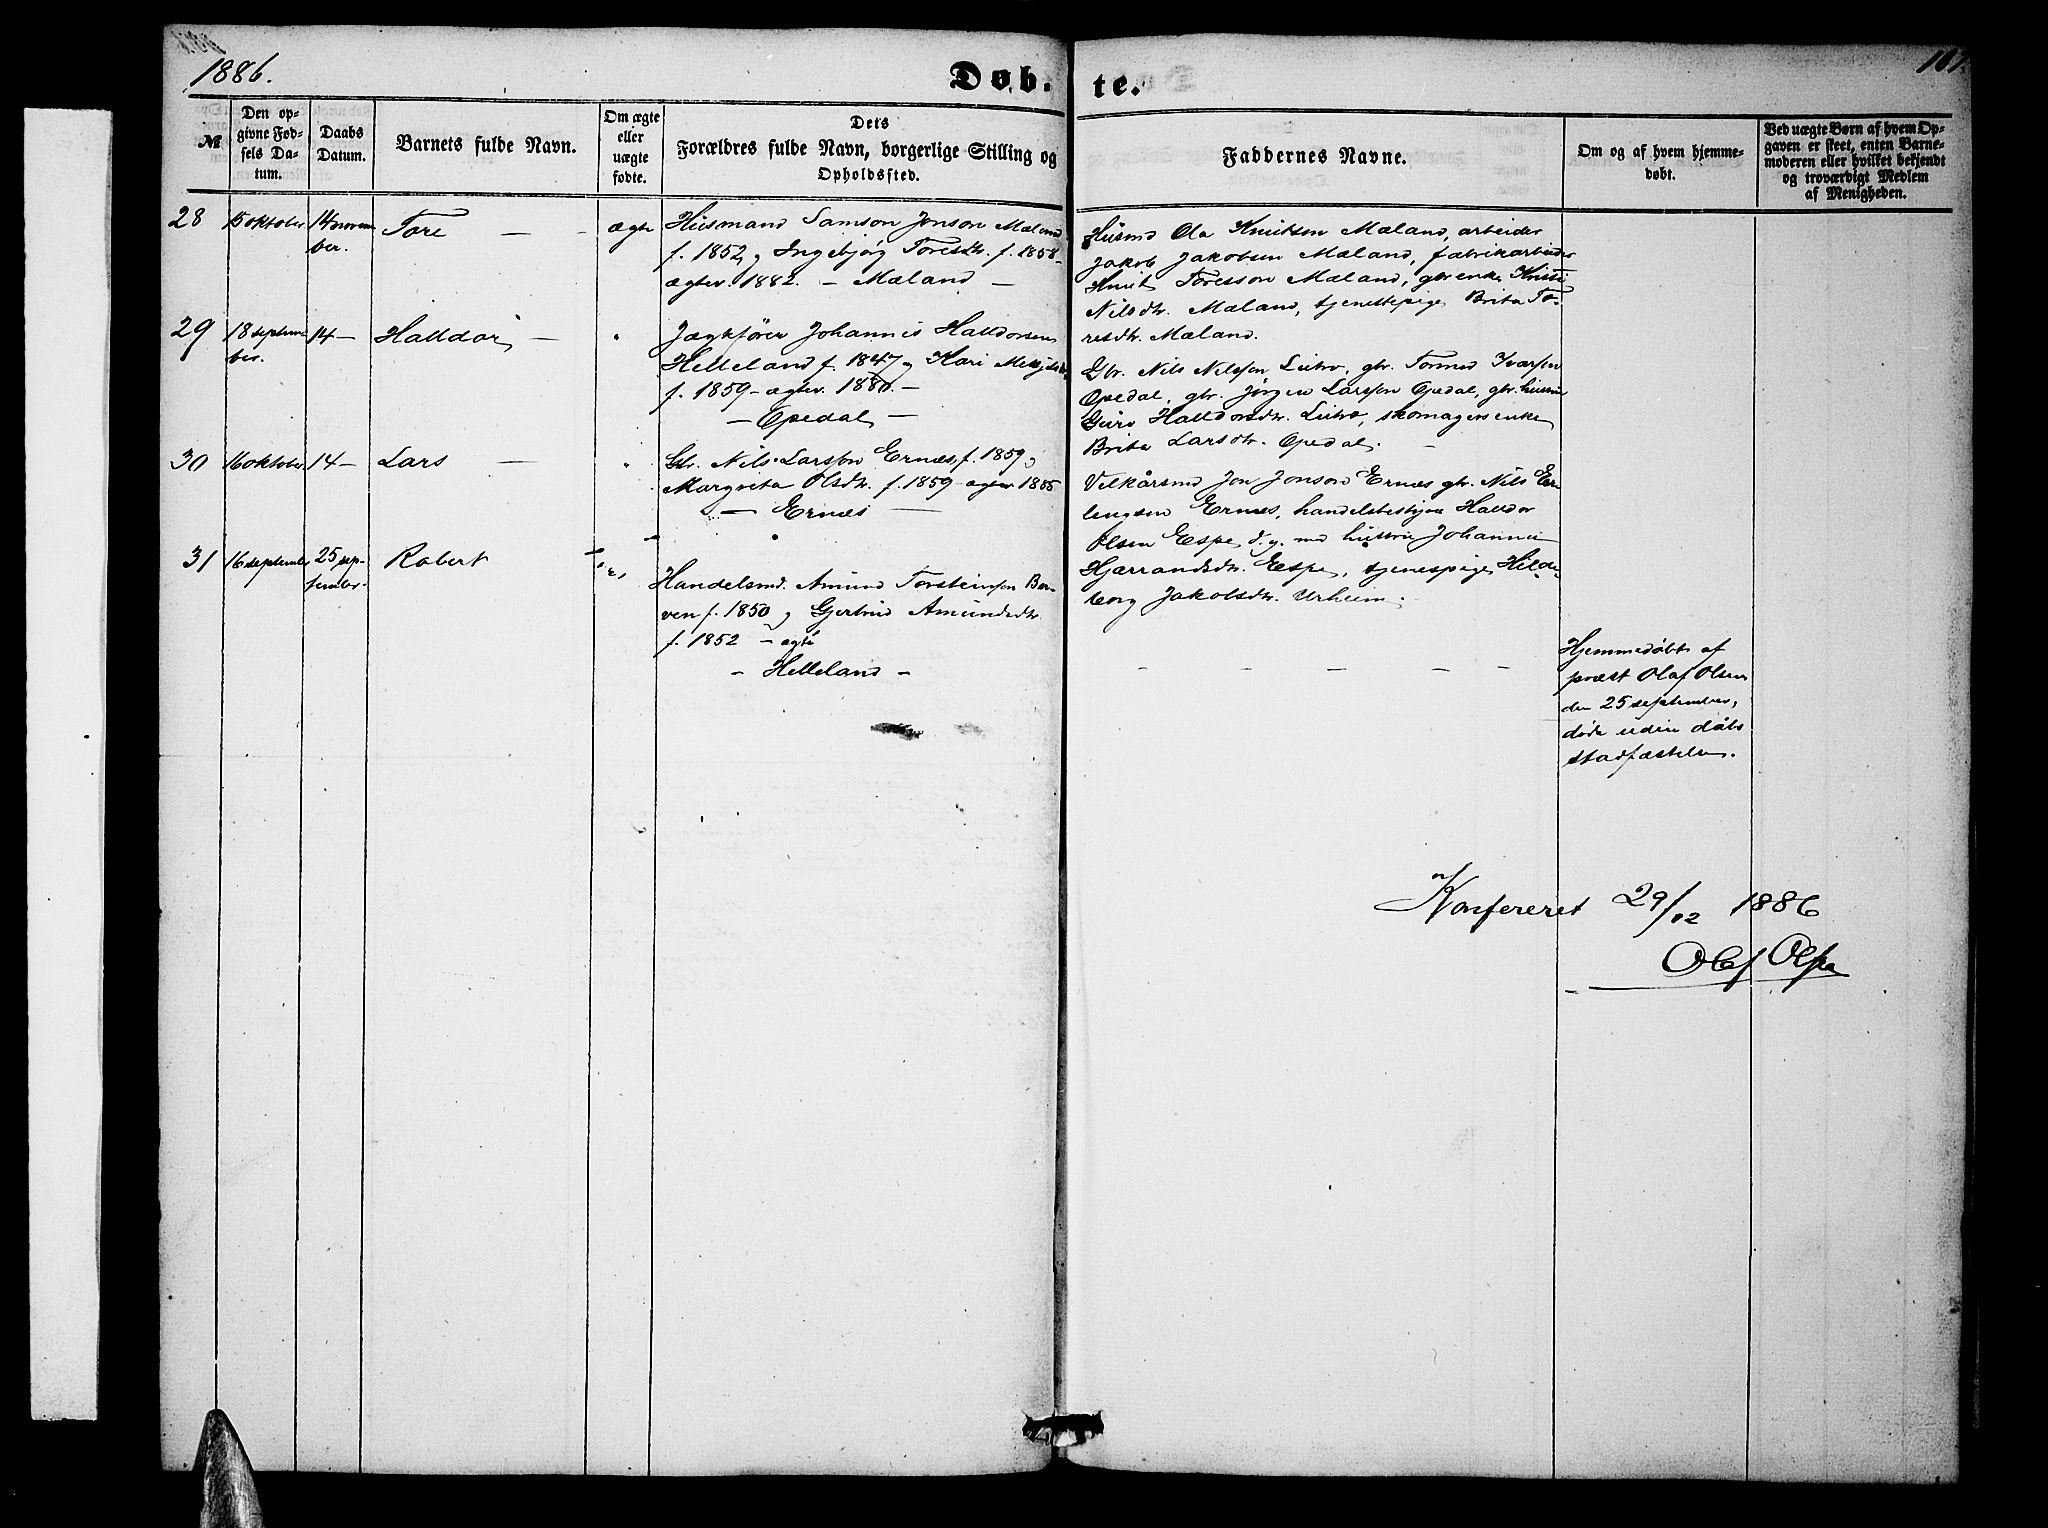 1886.
Døb-
te.
167
№
Den op-
givne Fød-
sels Da-
tum.
Daabs
Datum.
Barnets fulde Navn.
Om ægte
eller
uægte
fødte.
Dets
Forældres fulde Navn, borgerlige Stilling og
Opholdssted.
Faddernes Navne.
Om og af hvem hjemme-
døbt.
Ved uægte Børn af hvem Op-
gaven er skeet, enten Barne-
moderen eller hvilket bekjendt
og troværdigt Medlem
af Menigheden.
28
15 oktober
14 novem
ber.
Tore — -
ægte
Husmand Samson Jonson Mæland
f. 1852 og Ingebjörg Toresdtr. f. 1858 -
ægtev. 1882. - Mæland -
Husmd Ola Knutson Mæland, arbeider
Jakob Jakobsen Mæland, fabrikarbeider
Knut Toresson Mæland, gbr enke Kristi
Nilsdtr. Mæland, tjenestepige Brita To-
resdtr. Mæland.
29
18 septem
ber.
14 -
Halldor -
"
Jægtfører Johannis Halldorsen
Helleland f. 1847 og Kari
f. 1859 - ægtev. 1880. -
- Opedal -
Gbr. Nils Nilsson Lutro, gbr. Tormod Ivarsen
Opedal, gbr. Jörgen Larsson Opedal, gbr. hustru
Guro Halldorsdtr. Lutro, skomagerenke
Brita Larsdtr. Opedal. -
30
16 oktober
14 -
Lars —
"
Gbr. Nils Larsson Ernæs, f. 1859 og
Margreta Olsdtr. f. 1859 - ægtev 1885
- Ernæs -
Velkårsmd Jon Jonson Ernæs gbr. Nils Er-
lingsen Ernæs, handelsbestyrer Halldor
Olsen Espe d. y. med hustru Johanne
Hjærrandsdtr. Espe, tjenespige Hilde-
borg Jakobsdtr. Urheim.
31
16 september
25 sep-
tember.
Robert
Handelsmd. Amund Torsteinsen Bor-
ven f. 1850 og Gjertrud Amundsdtr
f. 1852 - ægte
- Helleland -
- - - - -
Hjemmedöbt af
præst Olaf Olsen
den 25 september,
döde uden dåbs
stadfæstelse.
Konfereret 29/12 1886
Olaf Olsen